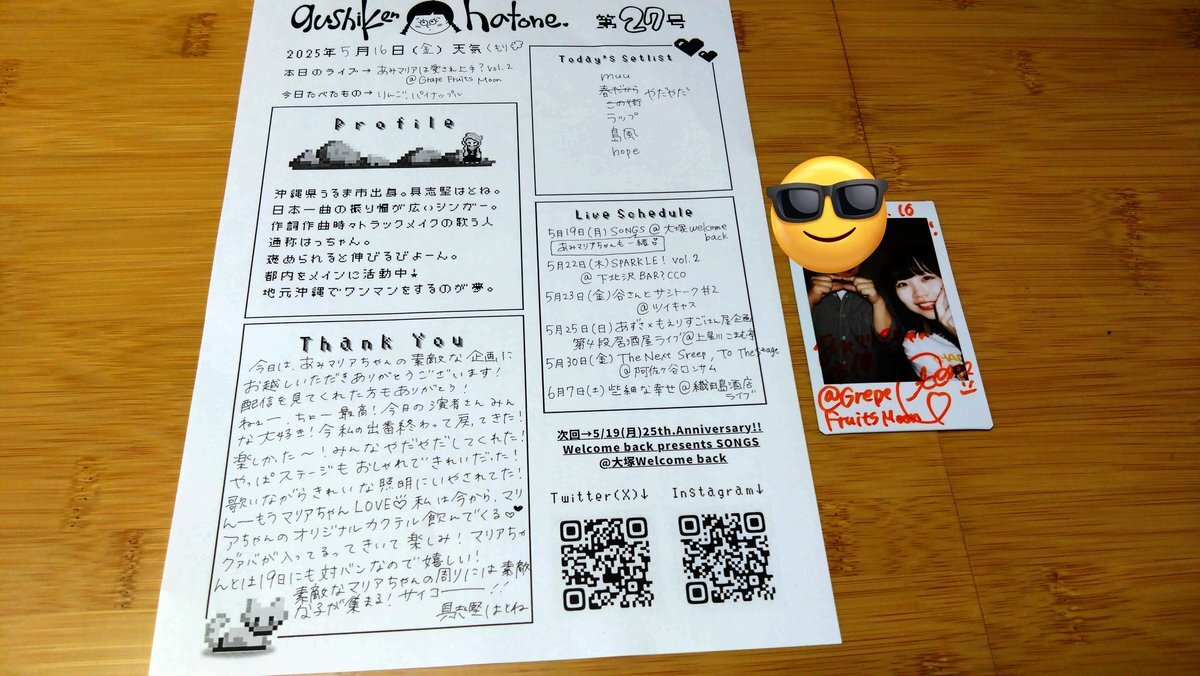 gushiken hatone. 第27号
2025年5月16日(金) 天気 くもり
本日のライブ→ あみマリアは愛され上手?vol.2
@Grape Fruits Moon
今日たべたもの→ りんご、パイナップル
Profile
沖縄県うるま市出身。具志堅はとね。
日本一曲の振り幅が広いシンガー。
作詞作曲時々トラックメイクの歌う人
通称はっちゃん。
褒められると伸びるびよーん。
都内をメインに活動中!
地元沖縄でワンマンをするのが夢。
Thank You
今日は、あみマリアちゃんの素敵な企画に
お越しいただきありがとうございます!
配信を見てくれた方もありがとう!
ねぇー、ちゃー最高!今日の演者さんみん
な大好き!今私の出番終わって戻ってきた!
楽しかった〜!みんなやだやだしてくれた!
やっぱステージもおしゃれできれいだった!
歌いながらきれいな照明にいやされてた!
んーもうマリアちゃんLOVE♡私は今から、マリ
アちゃんのオリジナルカクテル飲んでくる♡♥
グァバが入ってるってきいて楽しみ!マリアちゃ
んとは19日にも対バンなので嬉しい!
素敵なマリアちゃんの周りには素敵
な子が集まる!サイコー!!
具志堅はとね
Today's Setlist
muu
春だから やだやだ
この街
ラップ
島風
hope
Live Schedule
5月19日(月)SONGS@大塚welcome
back
あみマリアちゃんも一緒
5月22日(木)SPARKLE! vol.2
@下北沢BAR?CCO
5月23日(金)谷さんとサシトーク#2
@ツイキャス
5月25日(日)あずさ×もえりすごはん屋企画
第4段居酒屋ライブ@上星川こまむ亭
5月30日(金)The Next Sreep, To The Stage
@阿佐ヶ谷ロンサム
6月7日(土)些細な幸せ@織田島酒店
ライブ
次回→5/19(月)25th.Anniversary!!
Welcome back presents SONGS
@大塚Welcome back
Twitter(X)↓ Instagram↓
16
@Grape
Fruits Moon♡